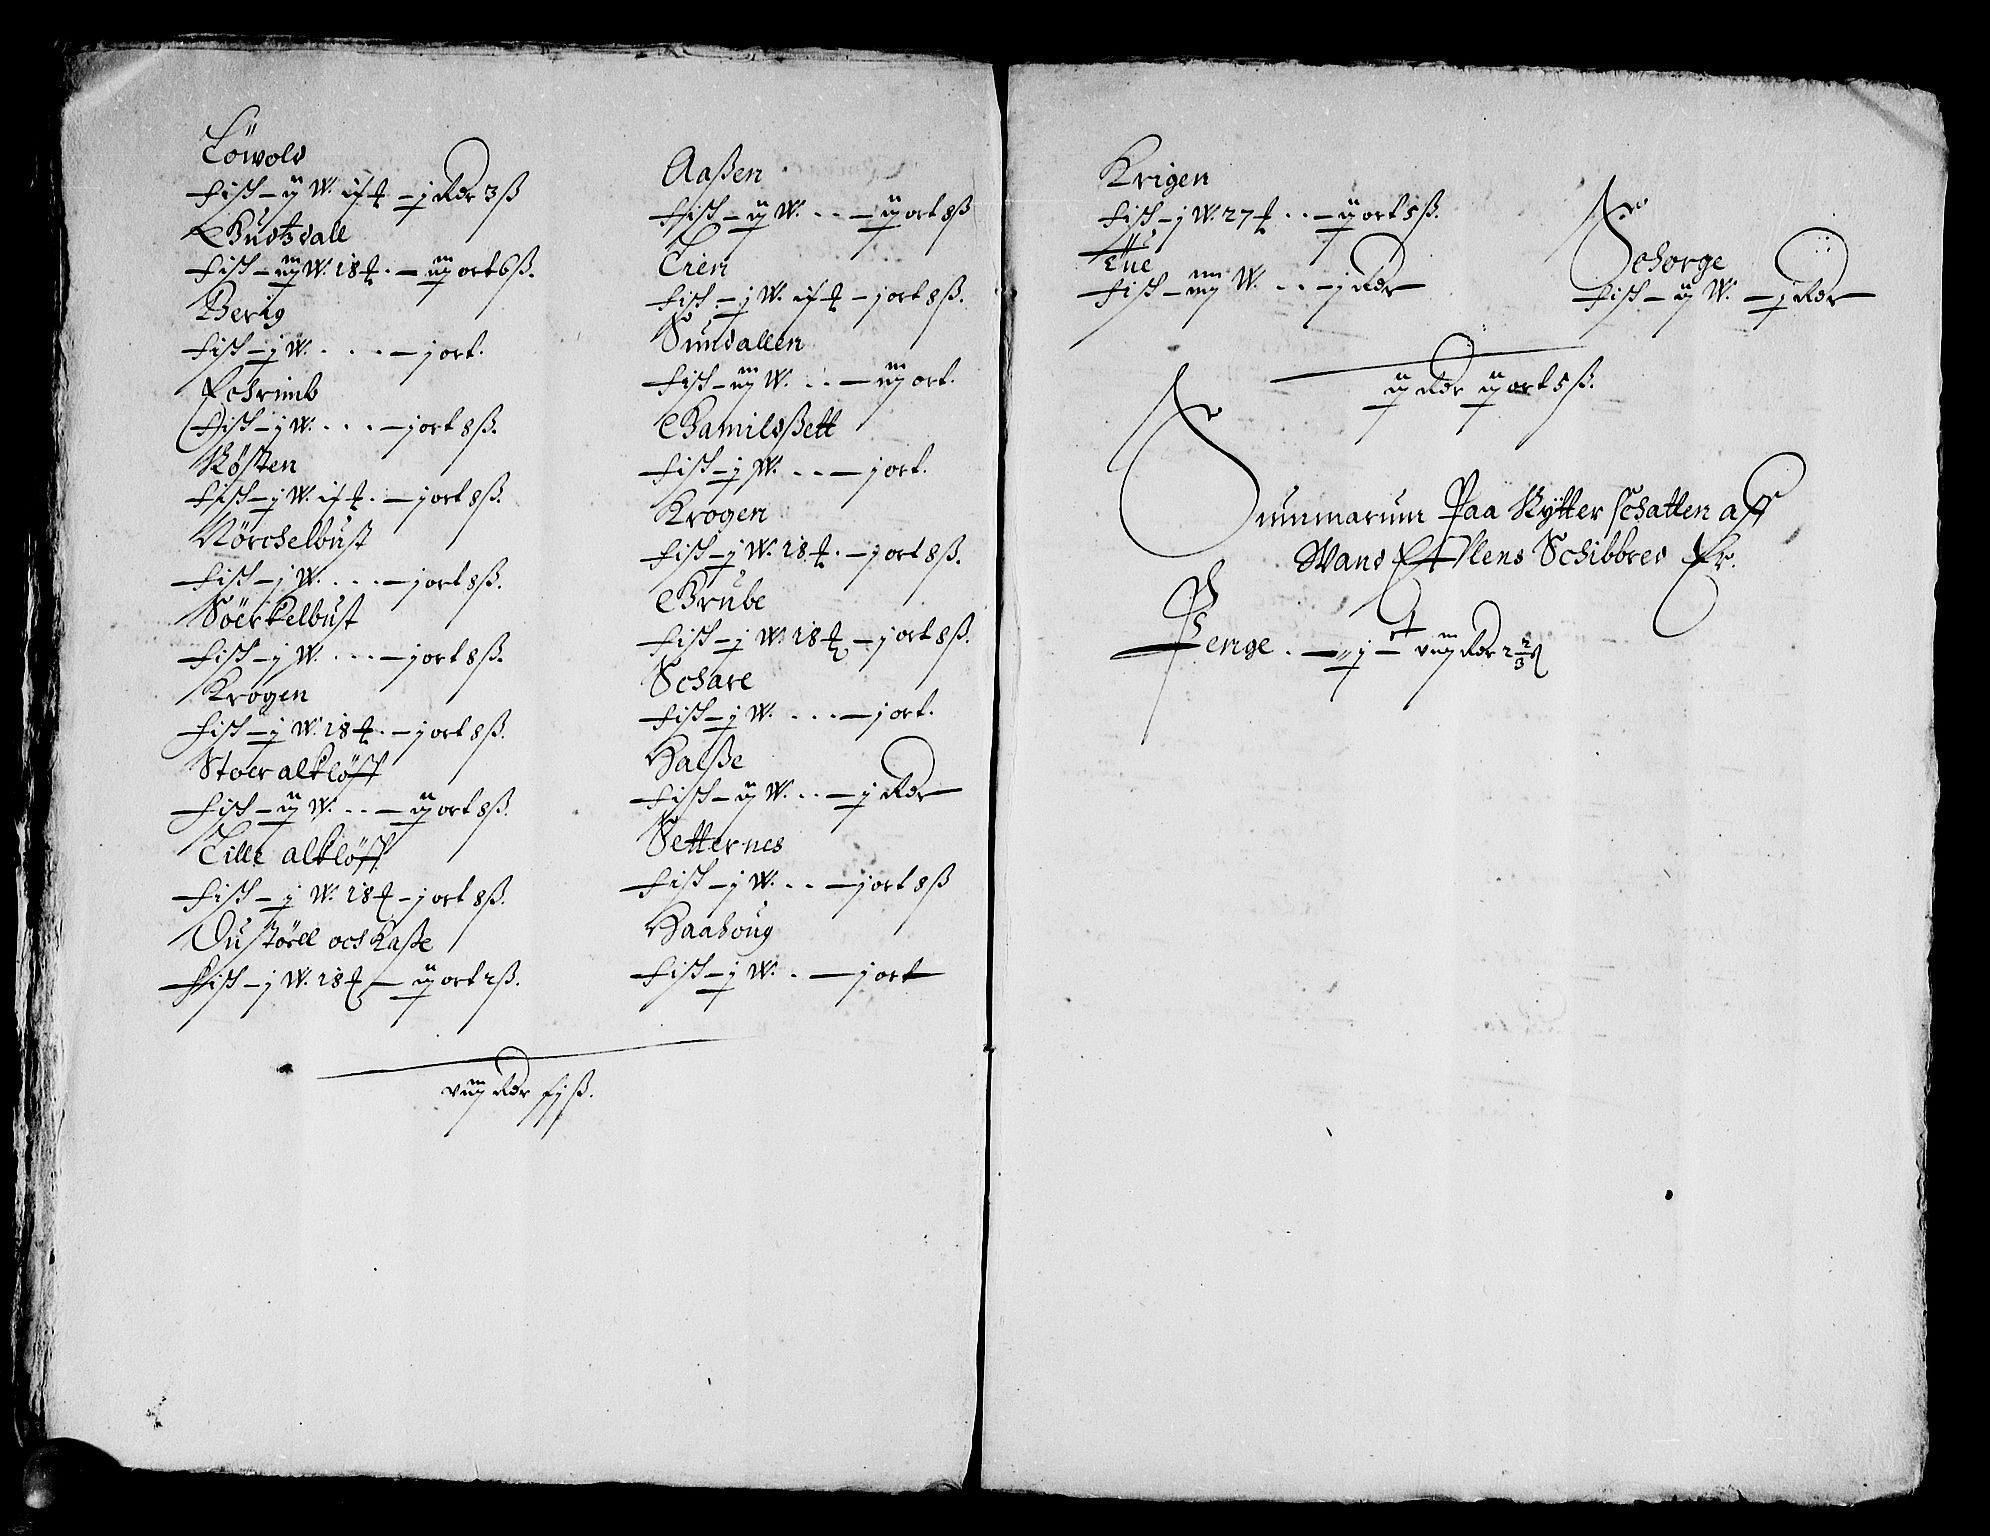 Löwold
Fisk – ij W. 1½ ℔ – j Rdr 3 ß
Gudtzdall
Fisk – iij W. 18 ℔. – iij ort 6 ß.
Berig
Fisk – j W. . . . – j ort.
Echrimb
Fisk – j W. . . . – j ort 8 ß.
Rösten
Fisk – j W. 1½ ℔. – j ort 8 ß.
Nörchelbust
Fisk – j W. . . . – j ort 8 ß.
Söerkelbust
Fisk – j W. . . . – j ort 8 ß.
Krogen
Fisk – j W. 18 ℔. – j ort 8 ß.
Stoer alklöff
Fisk – ij W. . . – ij ort 8 ß.
Lille alklöff
Fisk – j W. 18 ℔ – j ort 8 ß.
och Kaße
Fisk – j W. 18 ℔ – ij ort 2 ß.
Aaßen
Fisk – ij W. . . – ij ort 8 ß
Lien
Fisk – j W. 1½ ℔ – j ort 8 ß.
Sundallen
Fisk – iij W. . . – iij ort.
Gamildßett
Fisk – j W. . . – j ort.
Krogen
Fisk – j W. 18 ℔. – j ort 8 ß.
Grube
Fisk – j W. 18 ℔ – j ort 8 ß.
Schare
Fisk – j W. . . . – j ort.
Halße
Fisk – ij W. . . – j Rdr
Setternes
Fisk – j W. . . – j ort 8 ß
Haahoug
Fisk – j W. . – j ort
viij Rdr ß.
Krigen
Fisk – j W. 27 ℔ . . – ij ort 5 ß.
Tue
Fisk – iiij W. . . – j Rdr
Schorge
Fisk – ij W. – j Rdr
ij Rdr ij ort 5 ß.
Summarum Paa Rytter Schatten aff
Wand Ellens Schibbred Er.
Penge . – j – viij Rdr 2 2/3 ß